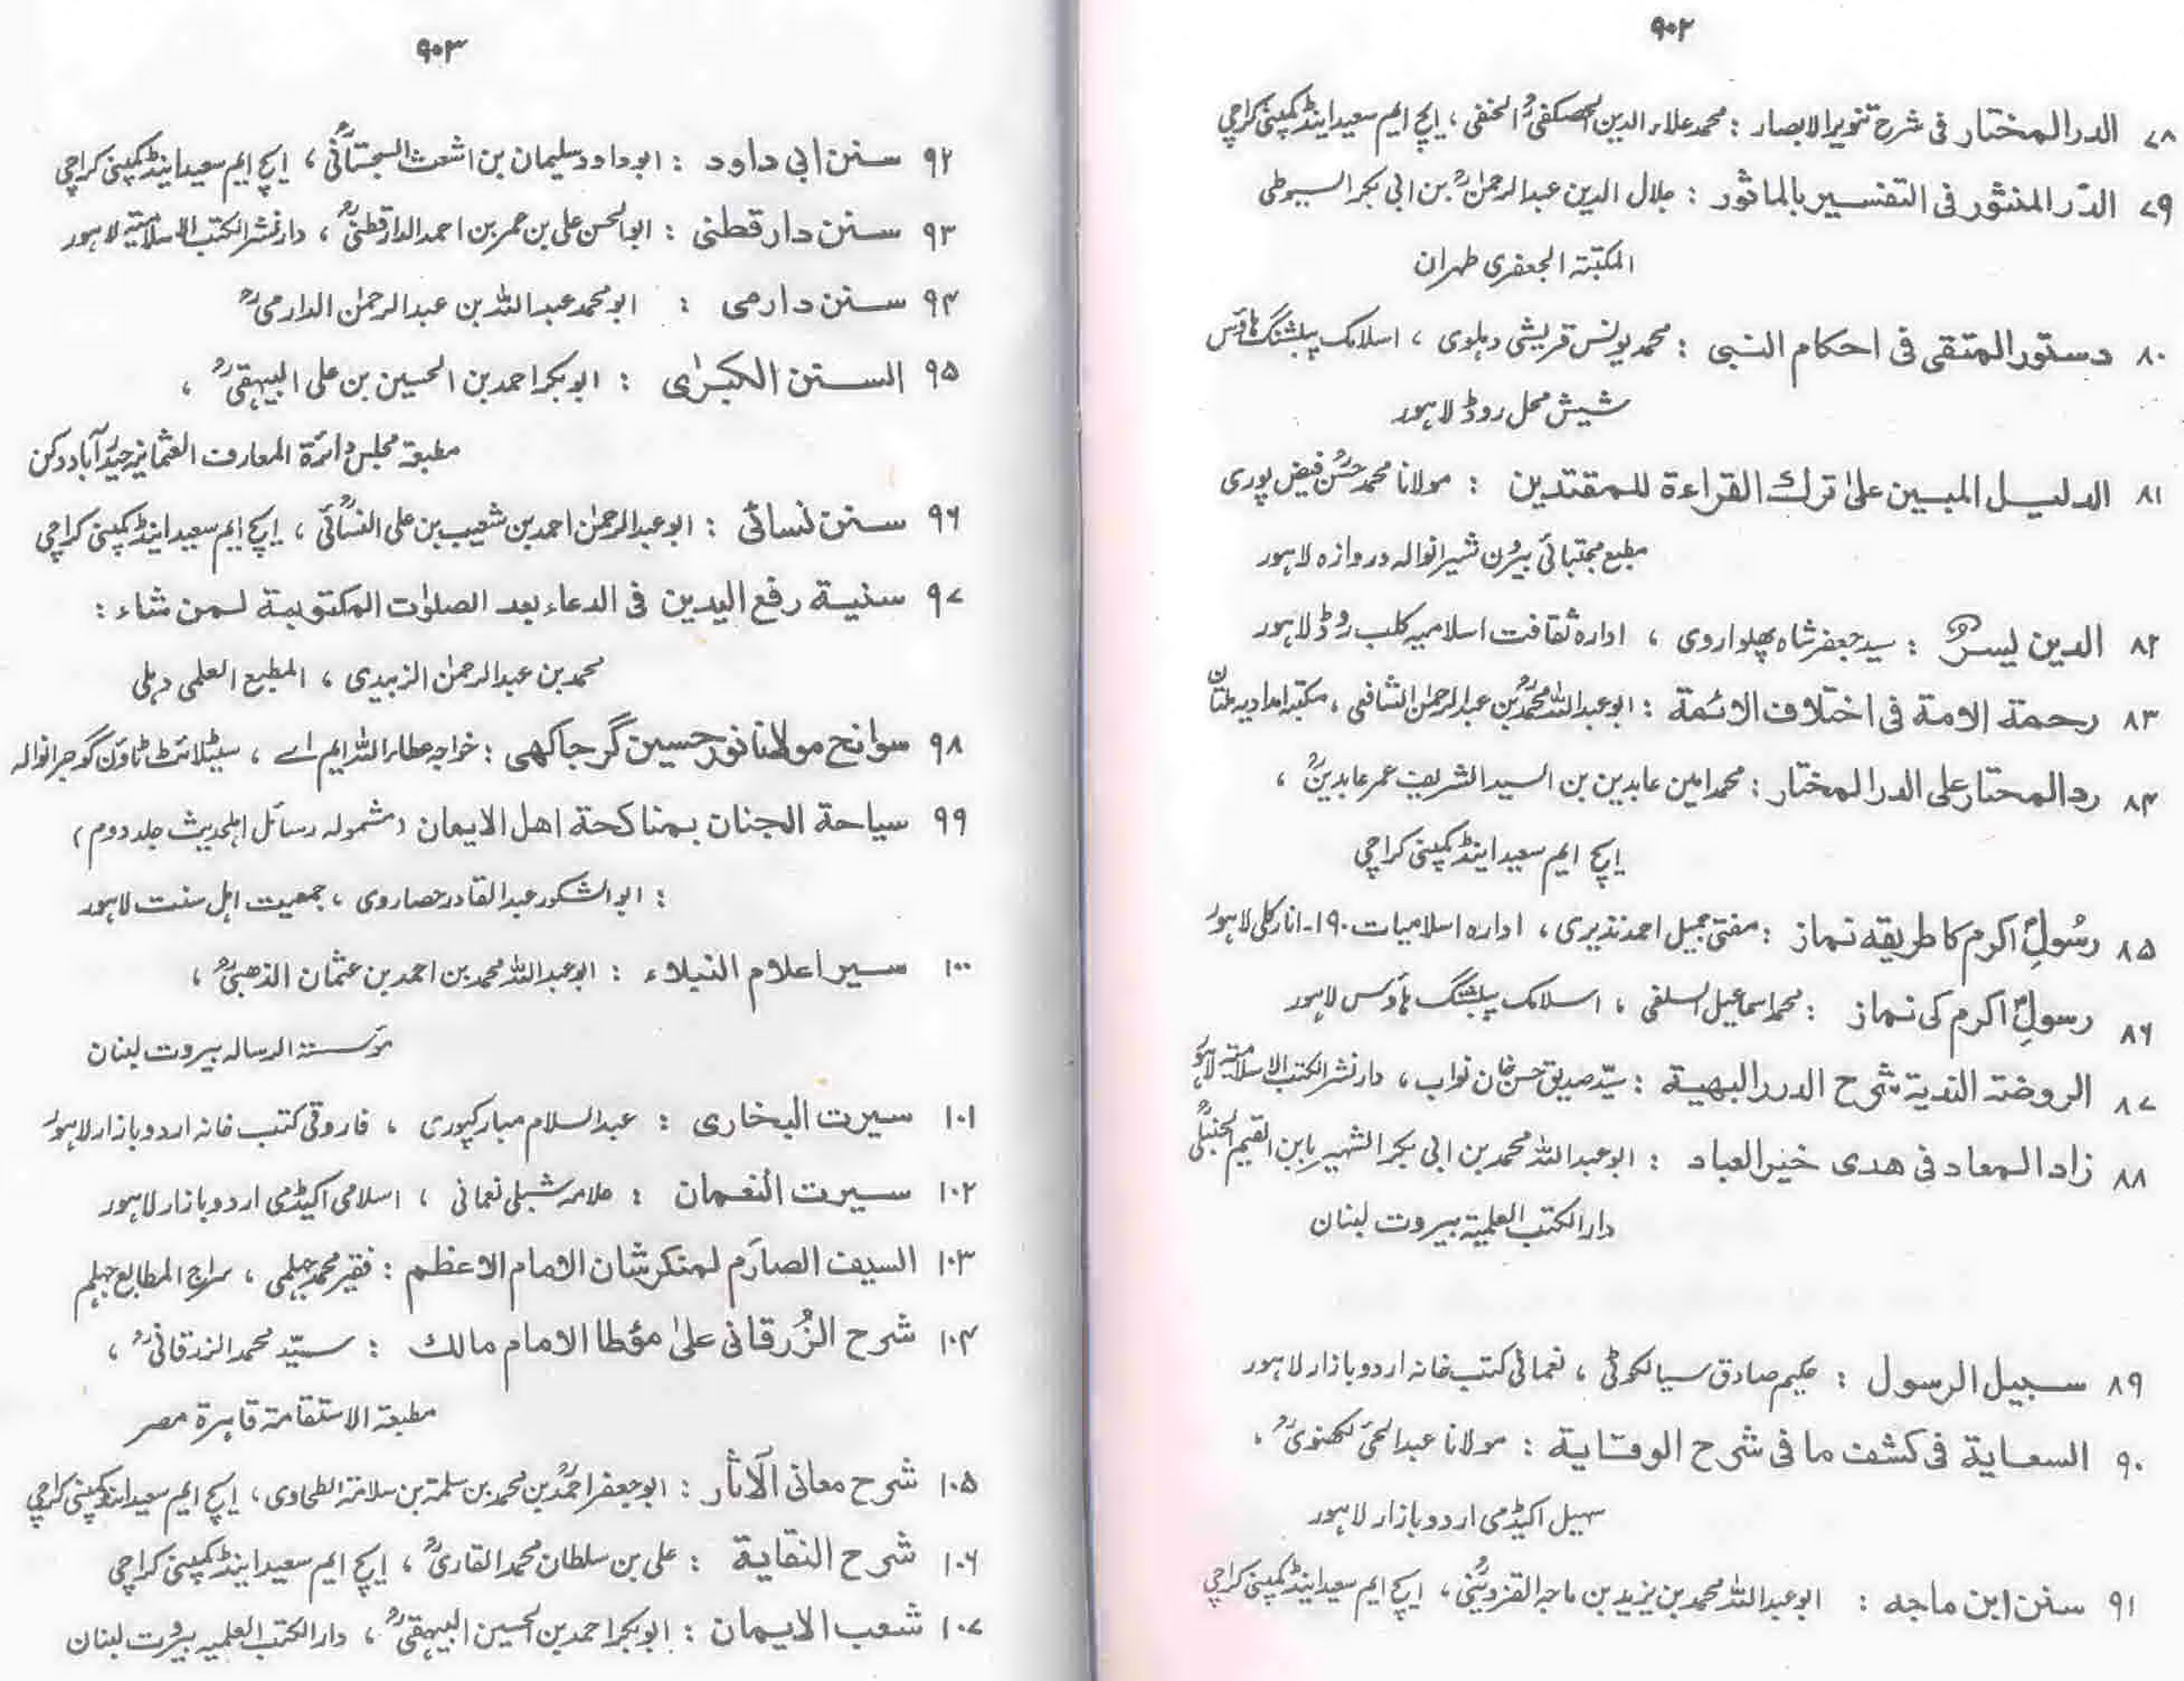 ۹۰۲
۷۸ الدرالمختار فی شرح تنویرالابصار : محمد علاء الدین الحصکفیؒ الحنفی ، ایچ ایم سعید اینڈ کمپنی کراچی
۷۹ الدّر المنثور فی التفسیر بالماثور : جلال الدین عبدالرحمٰنؒ بن ابی بکر السیوطی
المکتبتہ الجعفری طہران
۸۰ دستور المتقی فی احکام النبی : محمد یونس قریشی دہلوی ، اسلامک پبلشنگ ہاؤس
شیش محل روڈ لاہور
۸۱ الدلیل المبین علیٰ ترك القراءة للمقتدین : مولانا محمد حسنؒ فیض پوری
مطبع مجتبائی بیرون شیرانوالہ دروازہ لاہور
۸۲ الدین لیسرٌ : سید جعفر شاہ پھلواروی ، ادارہ ثقافت اسلامیہ کلب روڈ لاہور
۸۳ رحمة الامة فی اختلاف الائمة : ابوعبداللہ محمدؒ بن عبدالرحمٰن الشافعی ، مکتبہ امدادیہ ملتان
۸۴ ردالمحتار علی الدرالمختار : محمد امین عابدین بن السید الشریف عمر عابدینؒ ،
ایچ ایم سعید اینڈ کمپنی کراچی
۸۵ رسُولِؐ اکرم کا طریقہ نماز : مفتی جمیل احمد نذیری ، ادارہ اسلامیات ۱۹۰۔انارکلی لاہور
۸۶ رسولِؐ اکرم کی نماز : محمد اسماعیل السلفی ، اسلامک پبلشنگ ہاؤس لاہور
۸۷ الروضة الندیة شرح الدرر البهیة : سیّد صدیق حسن خان نواب ، دار نشر الکتب الاسلامیتہ لاہور
۸۸ زاد المعاد فی هدی خیرالعباد : ابوعبداللہ محمد بن ابی بکر الشہیر بابن القیم الحنبلیؒ
دارالکتب العلمیتہ بیروت لبنان
۸۹ سبیل الرسول : حکیم صادق سیالکوٹی ، نعمانی کتب خانہ اردو بازار لاہور
۹۰ السعایة فی کشف ما فی شرح الوقایة : مولانا عبدالحئی لکھنویؒ ،
سہیل اکیڈمی اردو بازار لاہور
۹۱ سنن ابن ماجه : ابوعبداللہ محمد بن یزید بن ماجہ القزوینیؒ ، ایچ ایم سعید اینڈ کمپنی کراچی
۹۰۳
۹۲ سنن ابی داود : ابوداود سلیمان بن اشعث السجستانیؒ ، ایچ ایم سعید اینڈ کمپنی کراچی
۹۳ سنن دارقطنی : ابوالحسن علی بن عمر بن احمد الدارقطنیؒ ، دار نشر الکتب الاسلامیتہ لاہور
۹۴ سنن دارمی : ابومحمد عبداللہ بن عبدالرحمٰن الدارمیؒ
۹۵ السنن الکبرٰی : ابوبکر احمد بن الحسین بن علی البیہقیؒ ،
مطبعتہ مجلس دائرۃ المعارف العثمانیہ حیدرآباد دکن
۹۶ سنن نسائی : ابوعبدالرحمٰن احمد بن شعیب بن علی النسائیؒ ، ایچ ایم سعید اینڈ کمپنی کراچی
۹۷ سنیة رفع الیدین فی الدعاء بعد الصلوٰت المکتوبة لمن شاء :
محمد بن عبدالرحمٰن الزبیدی ، المطبع العلمی دہلی
۹۸ سوانح مولانا نور حسین گرجاکھی : خواجہ عطاء اللہ ایم اے ، سیٹلائٹ ٹاؤن گوجرانوالہ
۹۹ سیاحة الجنان بمناکحة اهل الایمان (مشمولہ رسائل اہلحدیث جلد دوم)
: ابوالشکور عبدالقادر حصاروی ، جمعیت اہل سنت لاہور
۱۰۰ سیر اعلام النبلاء : ابوعبداللہ محمد بن احمد بن عثمان الذہبیؒ ،
مؤسستہ الرسالہ بیروت لبنان
۱۰۱ سیرت البخاری : عبدالسلام مبارکپوری ، فاروقی کتب خانہ اردو بازار لاہور
۱۰۲ سیرت النعمان : علامہ شبلی نعمانی ، اسلامی اکیڈمی اردو بازار لاہور
۱۰۳ السیف الصارم لمنکر شان الامام الاعظم : فقیر محمد جہلمی ، سراج المطابع جہلم
۱۰۴ شرح الزُرقانی علیٰ مؤطا الامام مالك : سیّد محمد الزرقانیؒ ،
مطبعتہ الاستقامتہ قاہرۃ مصر
۱۰۵ شرح معانی الآثار : ابوجعفر احمدؒ بن محمد بن سلمتہ بن سلامتہ الطحاوی ، ایچ ایم سعید اینڈ کمپنی کراچی
۱۰۶ شرح النقایة : علی بن سلطان محمد القاریؒ ، ایچ ایم سعید اینڈ کمپنی کراچی
۱۰۷ شعب الایمان : ابوبکر احمد بن الحسین البیہقیؒ ، دارالکتب العلمیہ بیروت لبنان